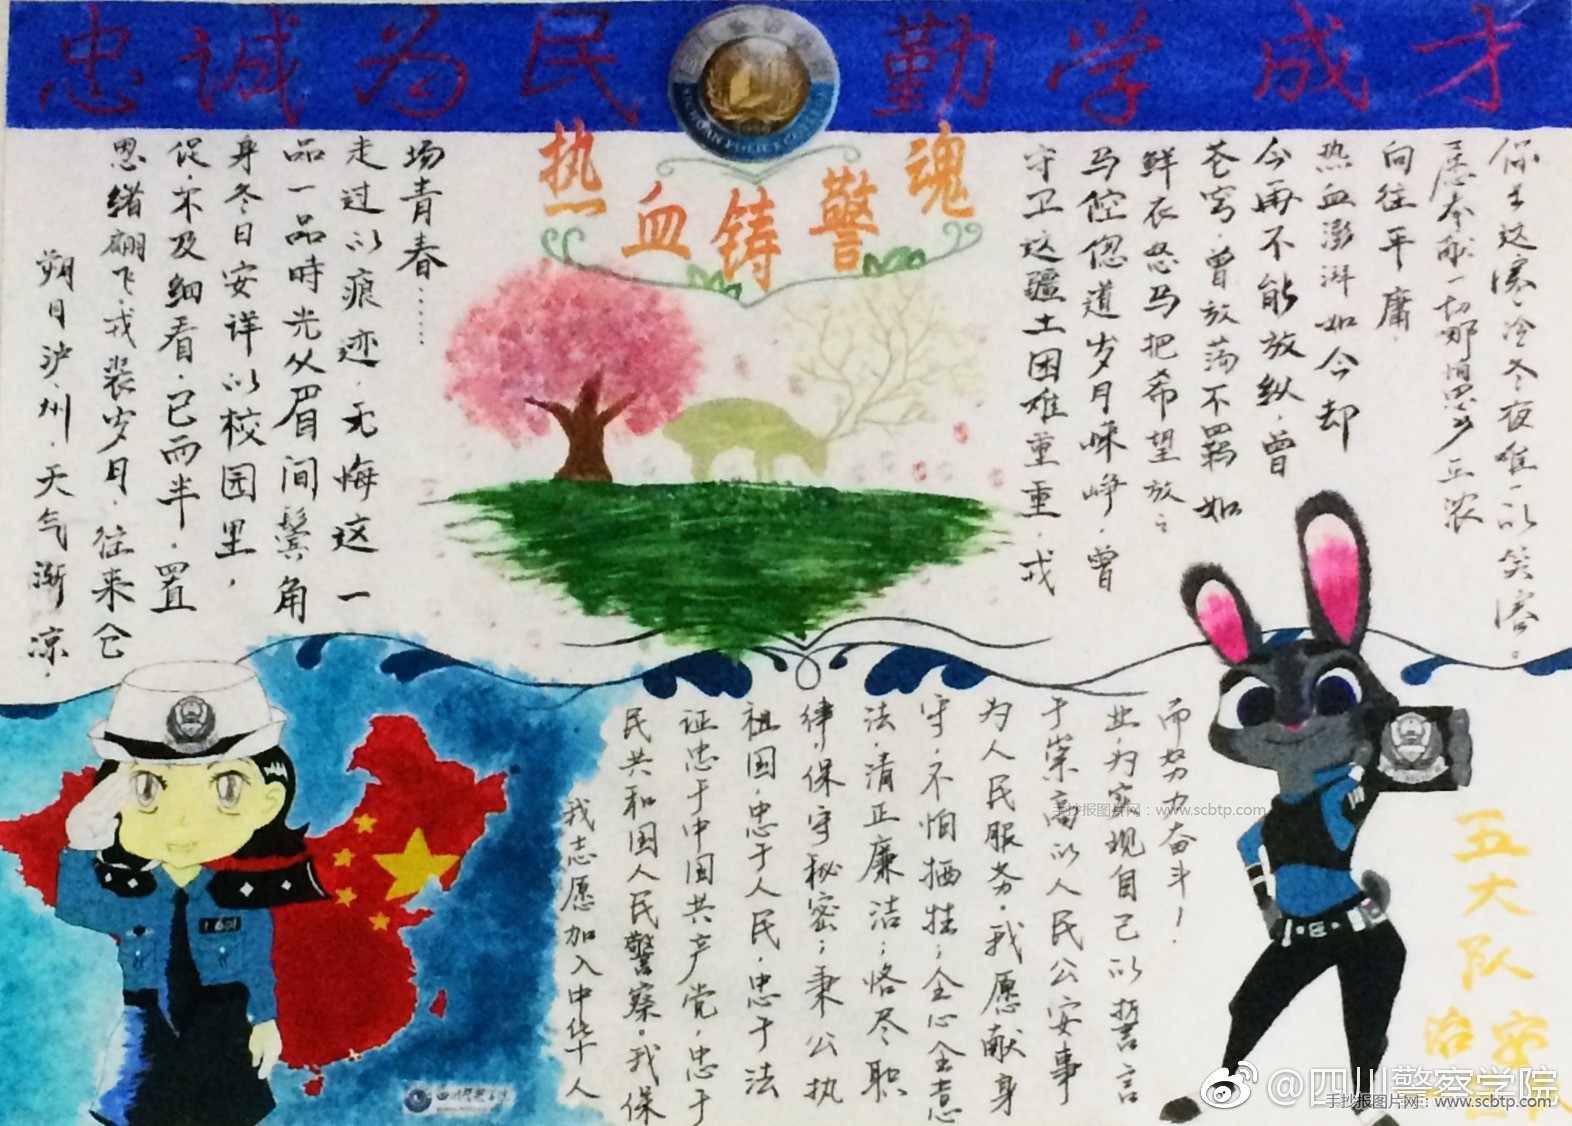 忠诚为民 勤学成才
热血铸警魂
朔日泸州.天气渐凉.
思绪翩飞.戎装岁月.往来仓
促.不及细看.已而半.置
身冬日安详的校园里,
品一品時光从眉间鬓角
走过的痕迹.无悔这一
场青春……
守卫这疆土困难重重.戎
马倥偬道岁月嵘峥.曾
鲜衣怒马把希望放之
苍穹.曾放荡不羁 如
今再不能放纵.曾
热血澎湃如今却
向往平庸.
愿奉献一切哪怕思乡正浓
这寒冷冬夜唯一的笑溶。
我志愿加入中华人
民共和国人民警察.我保
证忠于中国共产党,忠于
祖国,忠于人民,忠于法
律,保守秘密;秉公执
法,清正廉洁;恪尽职
守,不怕牺牲;全心全意
为人民服务.我愿献身
于崇高的人民公安事
业,为实现自己的誓言
而努力奋斗!
五大队
治安
手抄报图片网:www.scbtp.com
@四川警察学院
手抄报图片网:www.scbtp.com